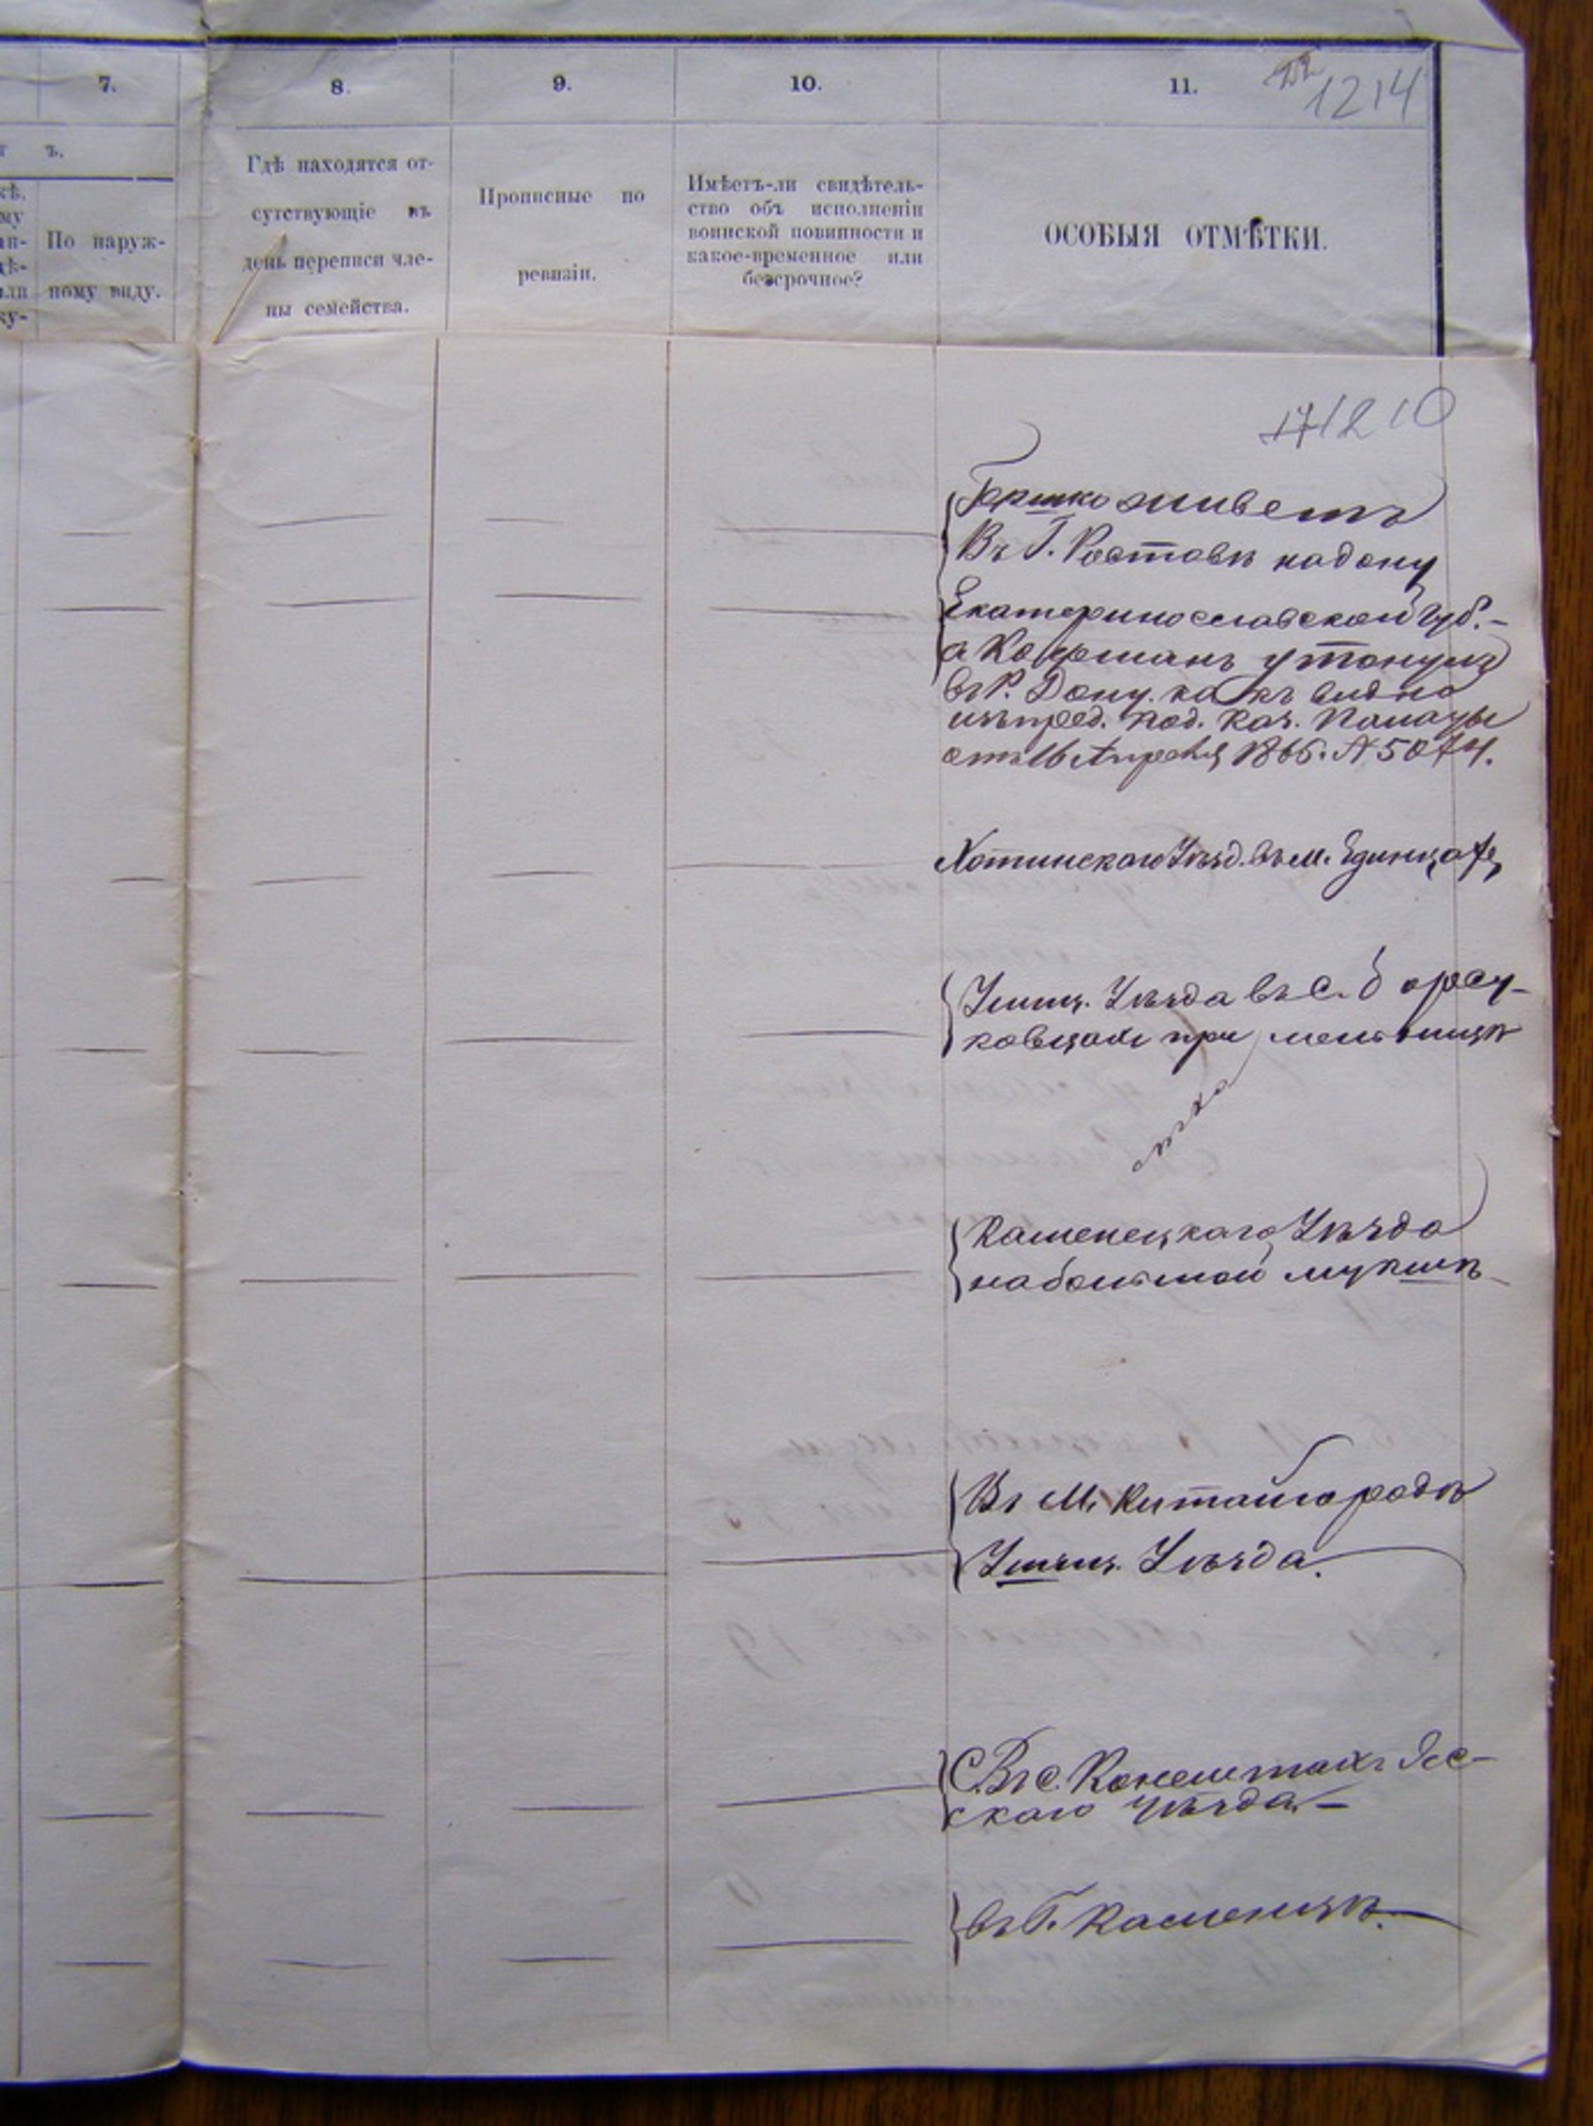 7.
8.
9.
10.
11.
1214
ъ.
По наруж-
ному виду.
Гдѣ находятся от-
сутствующіе въ
день переписи чле-
ны семейства.
Прописные по
ревизіи.
Имѣетъ-ли свидѣтель-
ство объ исполненіи
воинской повинности и
какое-временное или
безсрочное?
ОСОБЫЯ ОТМѢТКИ.
1210
Гершко живетъ
Въ Г. Ростовѣ на дону
Екатеринославской Губ.-
а Койфманъ утонулъ
въ Р. Дону какъ видно
изъ пред. Под. Каз. Палаты
отъ 16 Апреля 1866. № 5074.
Хотинскаго Уѣзд. въ м. Единцахъ
Ушиц. Уѣзда въ С. Борсу-
ковцахъ при мельницѣ
Каменецкаго Уѣзда
на большой мукшѣ
Въ М. Китайгородѣ
Ушиц. Уѣзда.
Въ с. Конештахъ Яс-
скаго уѣзда.-
въ Г. Каменцѣ.